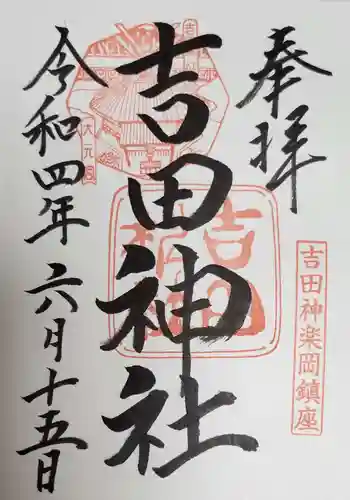 奉拝
吉田神社
令和四年六月十五日
吉田神楽岡鎮座
大元宮